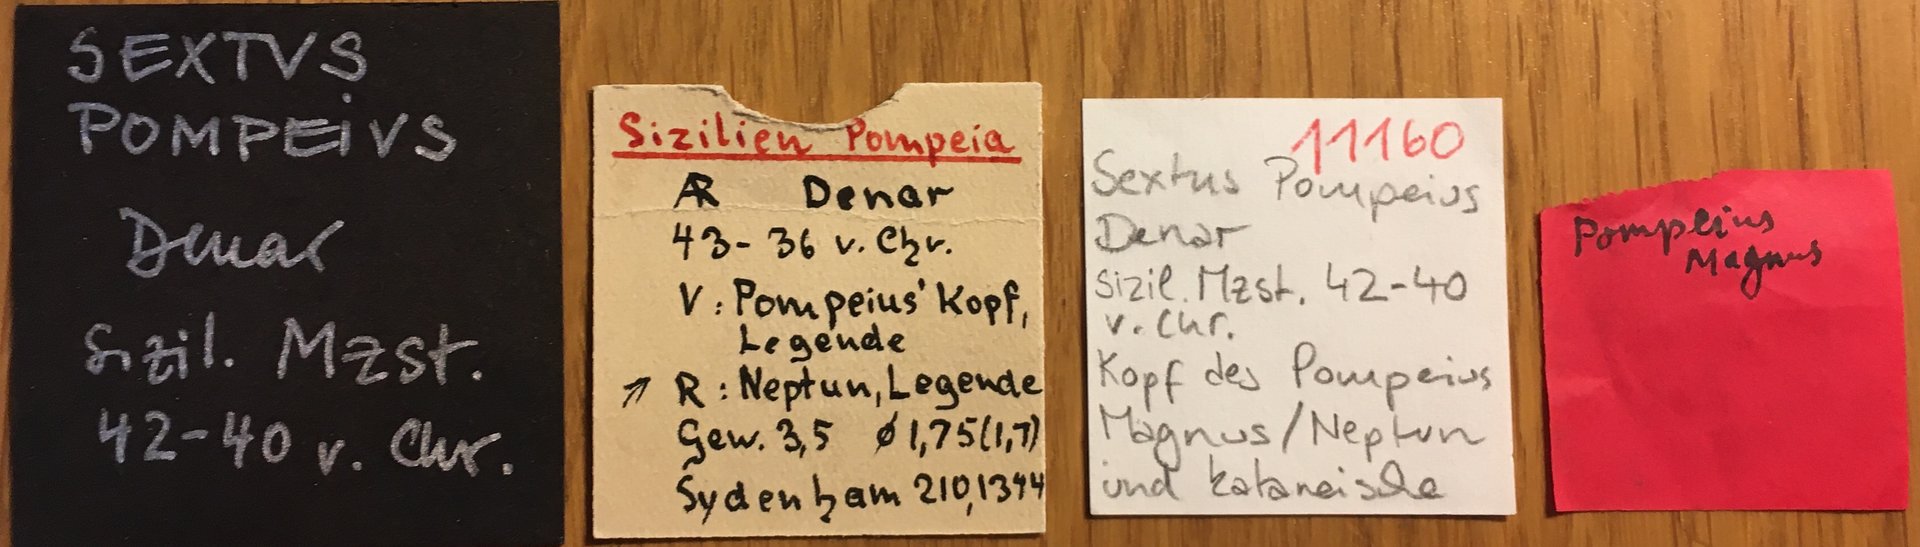 SEXTVS
POMPEIVS
Denar
Sizil. Mzst.
42-40 v. Chr.
Sizilien Pompeia
AR Denar
43-36 v. Chr.
V: Pompeius' Kopf,
Legende
↗ R: Neptun, Legende
Gew. 3,5 ø 1,75(1,7)
Sydenham 210,1344
11160
Sextus Pompeius
Denar
sizil. Mzst. 42-40
v. Chr.
Kopf des Pompeius
Magnus/Neptun
und kataneische
Pompeius
Magnus